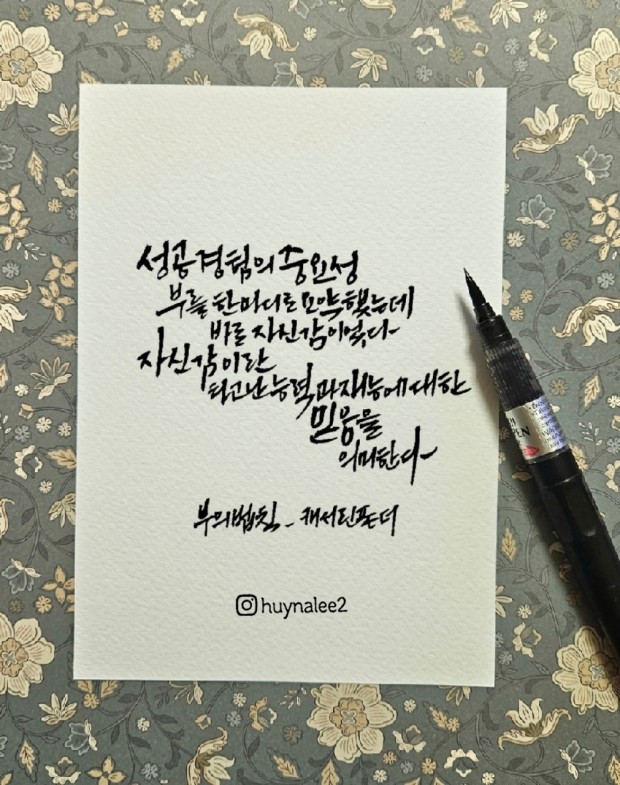 성공경험의 중요성
부를 한마디로 요약했는데
바로 자신감이었다
자신감이란
타고난 능력과 재능에 대한
믿음을
의미한다
부의 법칙_캐서린폰더
huynalee2
PEN